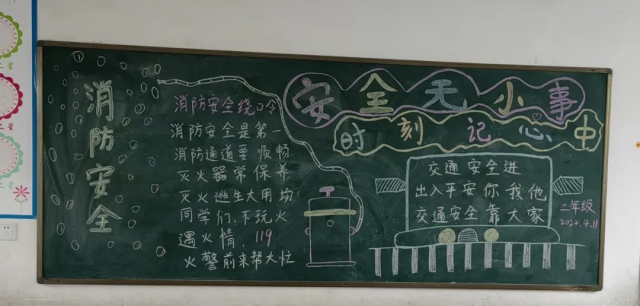 消防安全
消防安全绕口令
消防安全是第一
消防通道要顺畅
灭火器常保养
灭火逃生大用场
同学们,不玩火
遇火情,119
火警前来帮大忙
安全无小事
时刻记心中
交通安全进
出入平安你我他
交通安全靠大家
二年级
2024.4.11